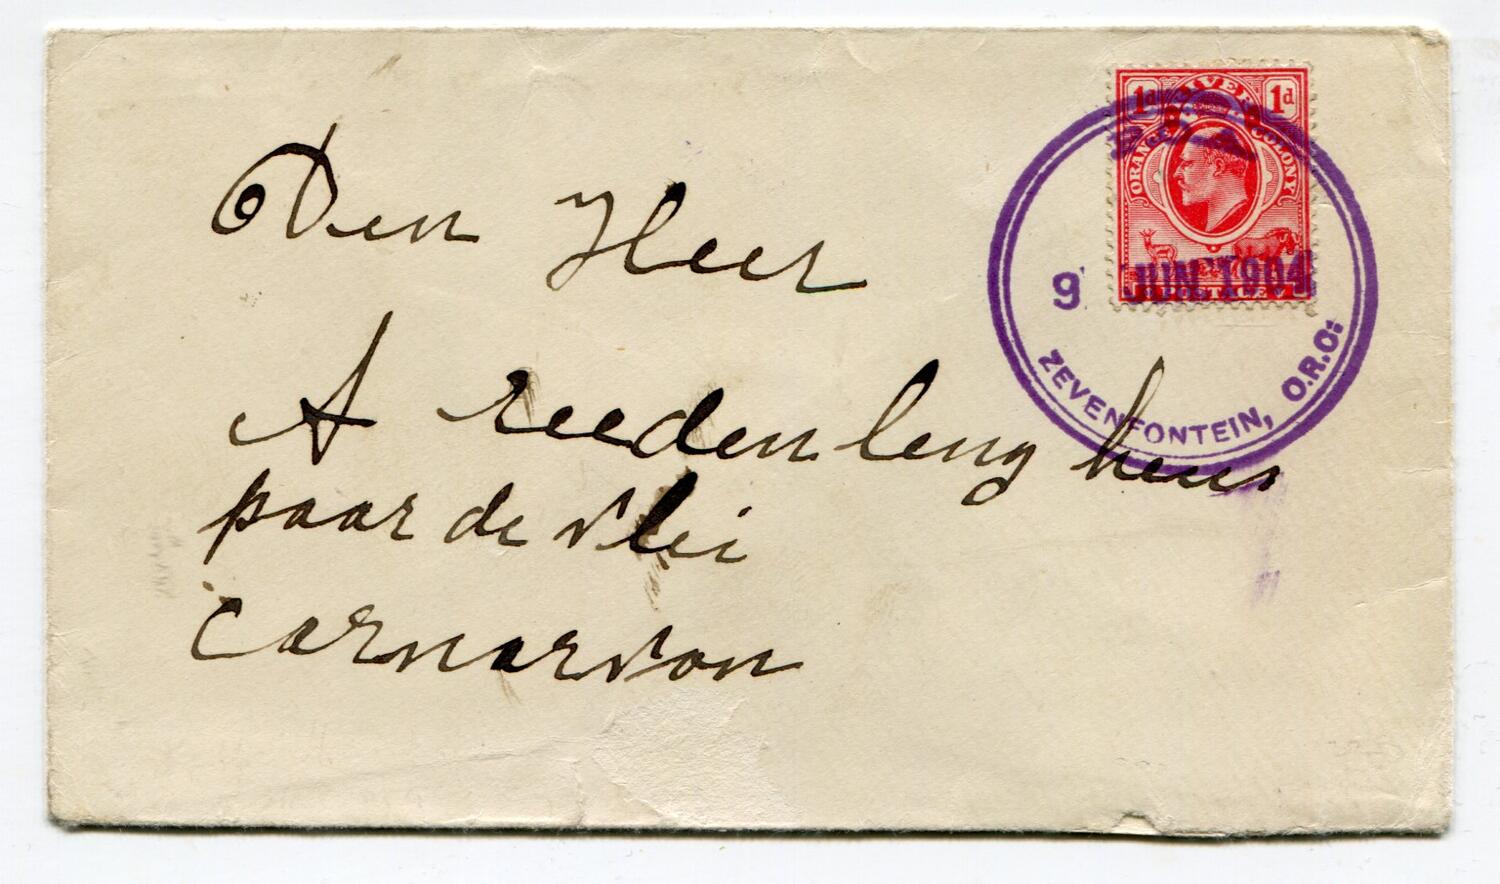 1d 1d
ORANGE RIVER COLONY
9 JUN 1904
POSTAGE
ZEVENFONTEIN, O.R.O:
Den Heer
A reedenlengheus
paar de vlei
carnarvon